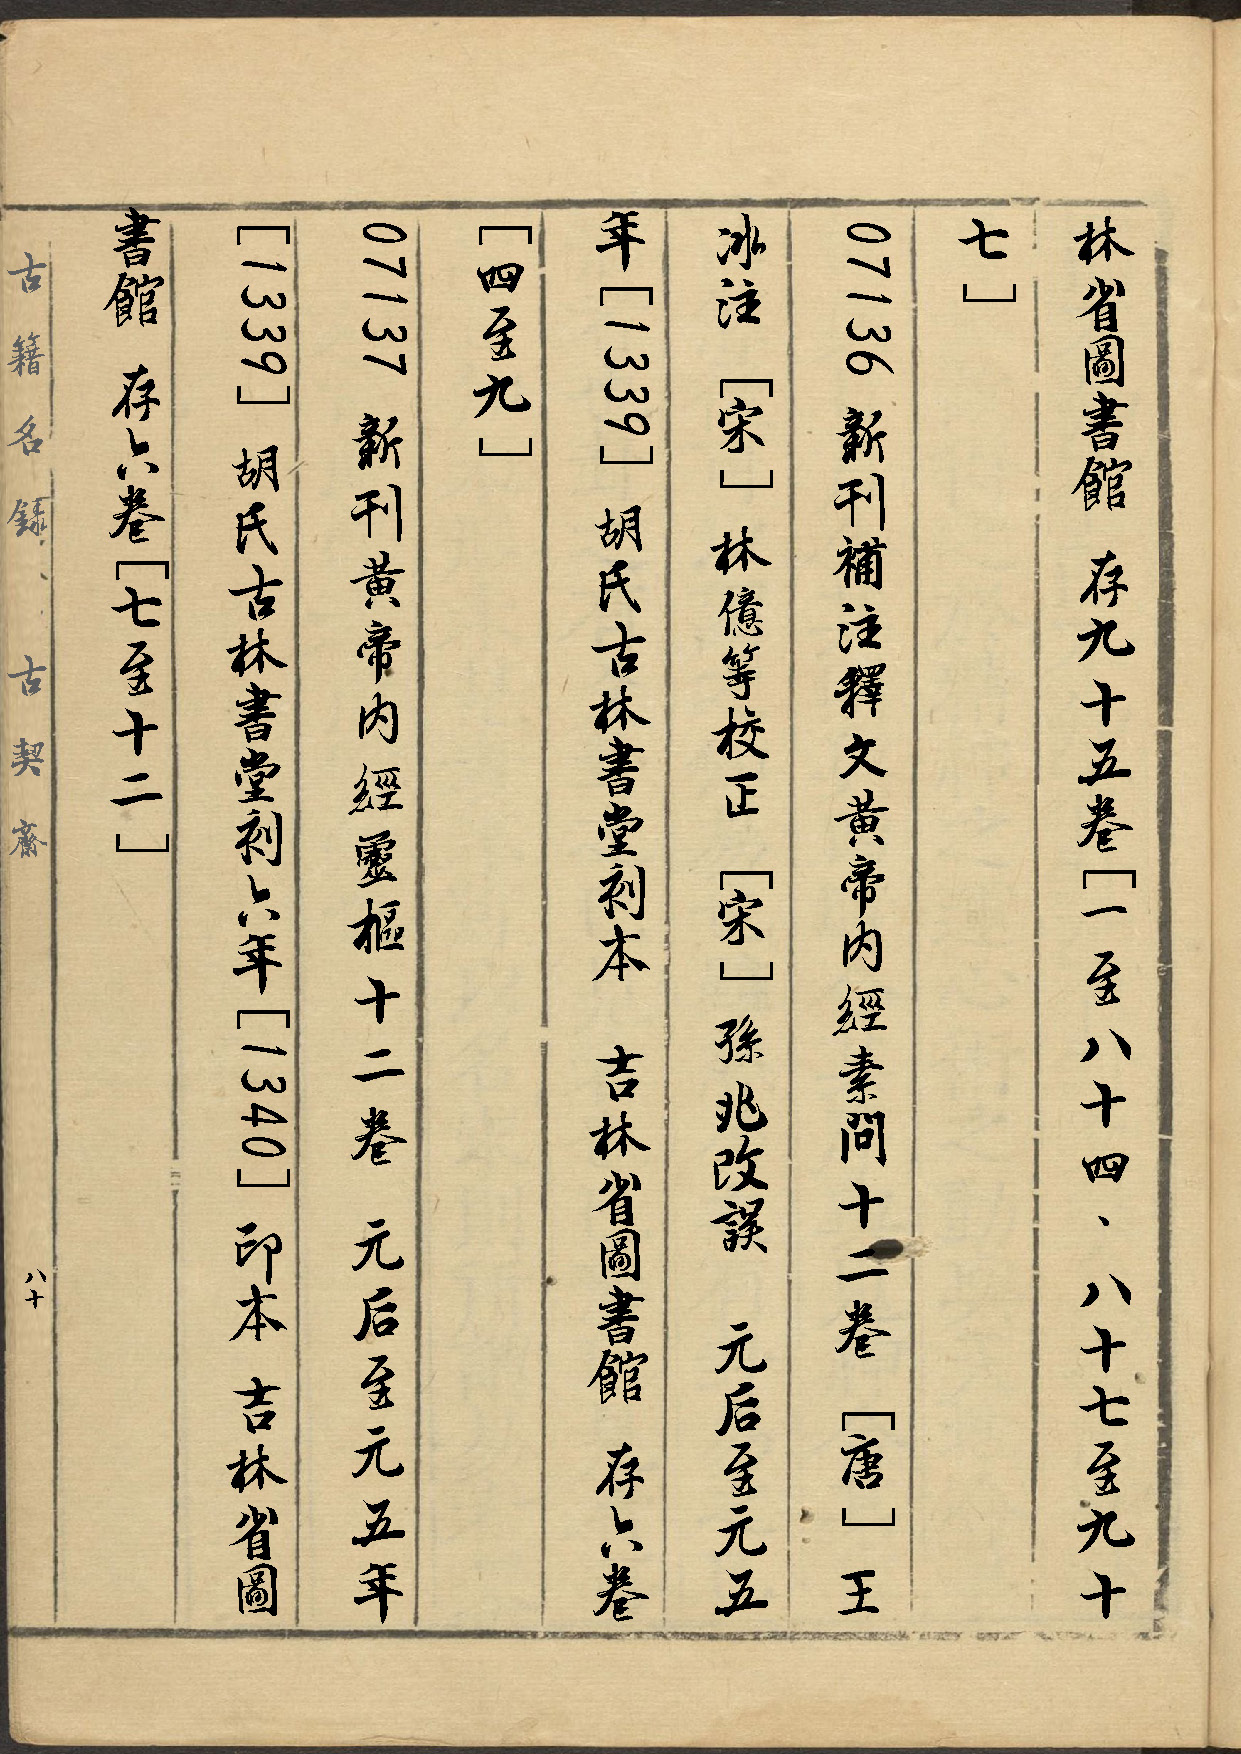 林省圖書館　存九十五卷［一至八十四、八十七至九十
七］
07136 新刊補注釋文黃帝內經素問十二卷［唐］王
冰注［宋］林億等校正［宋］孫兆改誤　元后至元五
年［1339］胡氏古林書堂刻本　吉林省圖書館　存六卷
［四至九］
07137 新刊黃帝內經靈樞十二卷　元后至元五年
［1339］胡氏古林書堂刻六年［1340］印本 吉林省圖
書館　存六卷［七至十二］
古籍名錄、古契齋
八十